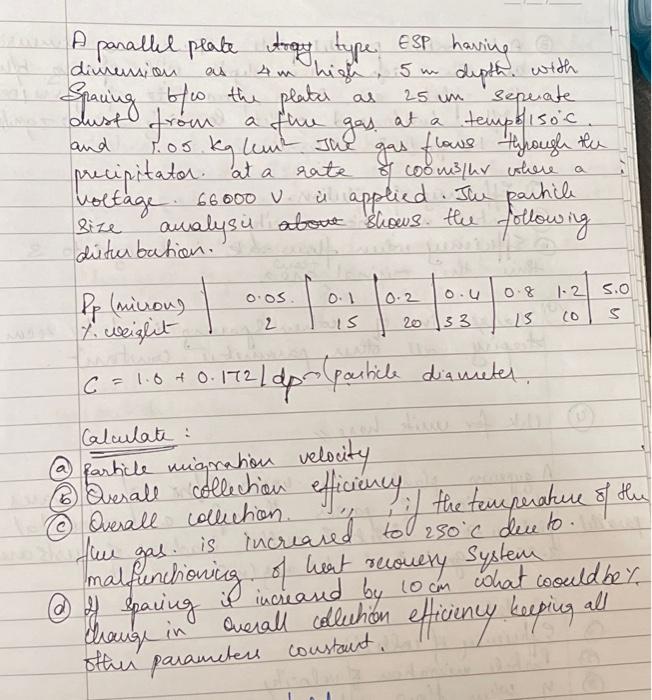 A parallel plate tray type ESP having
dimension as 4m high, 5 m depth. with
Spacing b/w the plates as 25 cm seperate
dust from a flue gas at a temp of 150°C.
and 1.05 kg/cm² The gas flows through the
precipitator. at a rate of 600 m3/hr where a
voltage. 66000 V is applied. The particle
size analysis shows. the following
disturbution.
Dp (micron) | 0.05. | 0.1 | 0.2 | 0.4 | 0.8 1.2 | 5.0
%. weight | 2 | 15 | 20 | 33 | 15 10 | 5
C = 1.0 + 0.172/dp→(particle diameter.
Calculate :
(a) Particle migration velocity
(b) Overall collection efficiency
(c) Overall collection. ,, , if the temperature of the
flue gas. is increased to 250°C due to.
malfunctioning of heat recovery System
(d) If spacing is increased by 10 cm what would be %.
change in overall collection efficiency keeping all
other parameters constant.